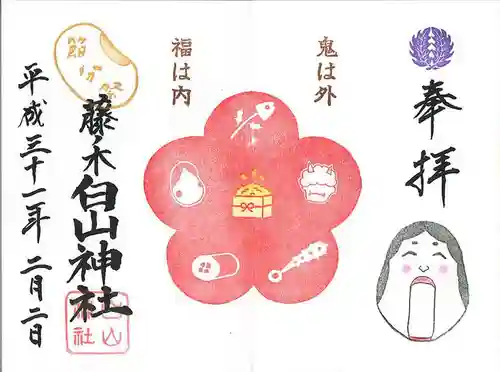 奉拝
鬼は外
福は内
節分祭
藤ノ木白山神社
平成三十一年二月二日